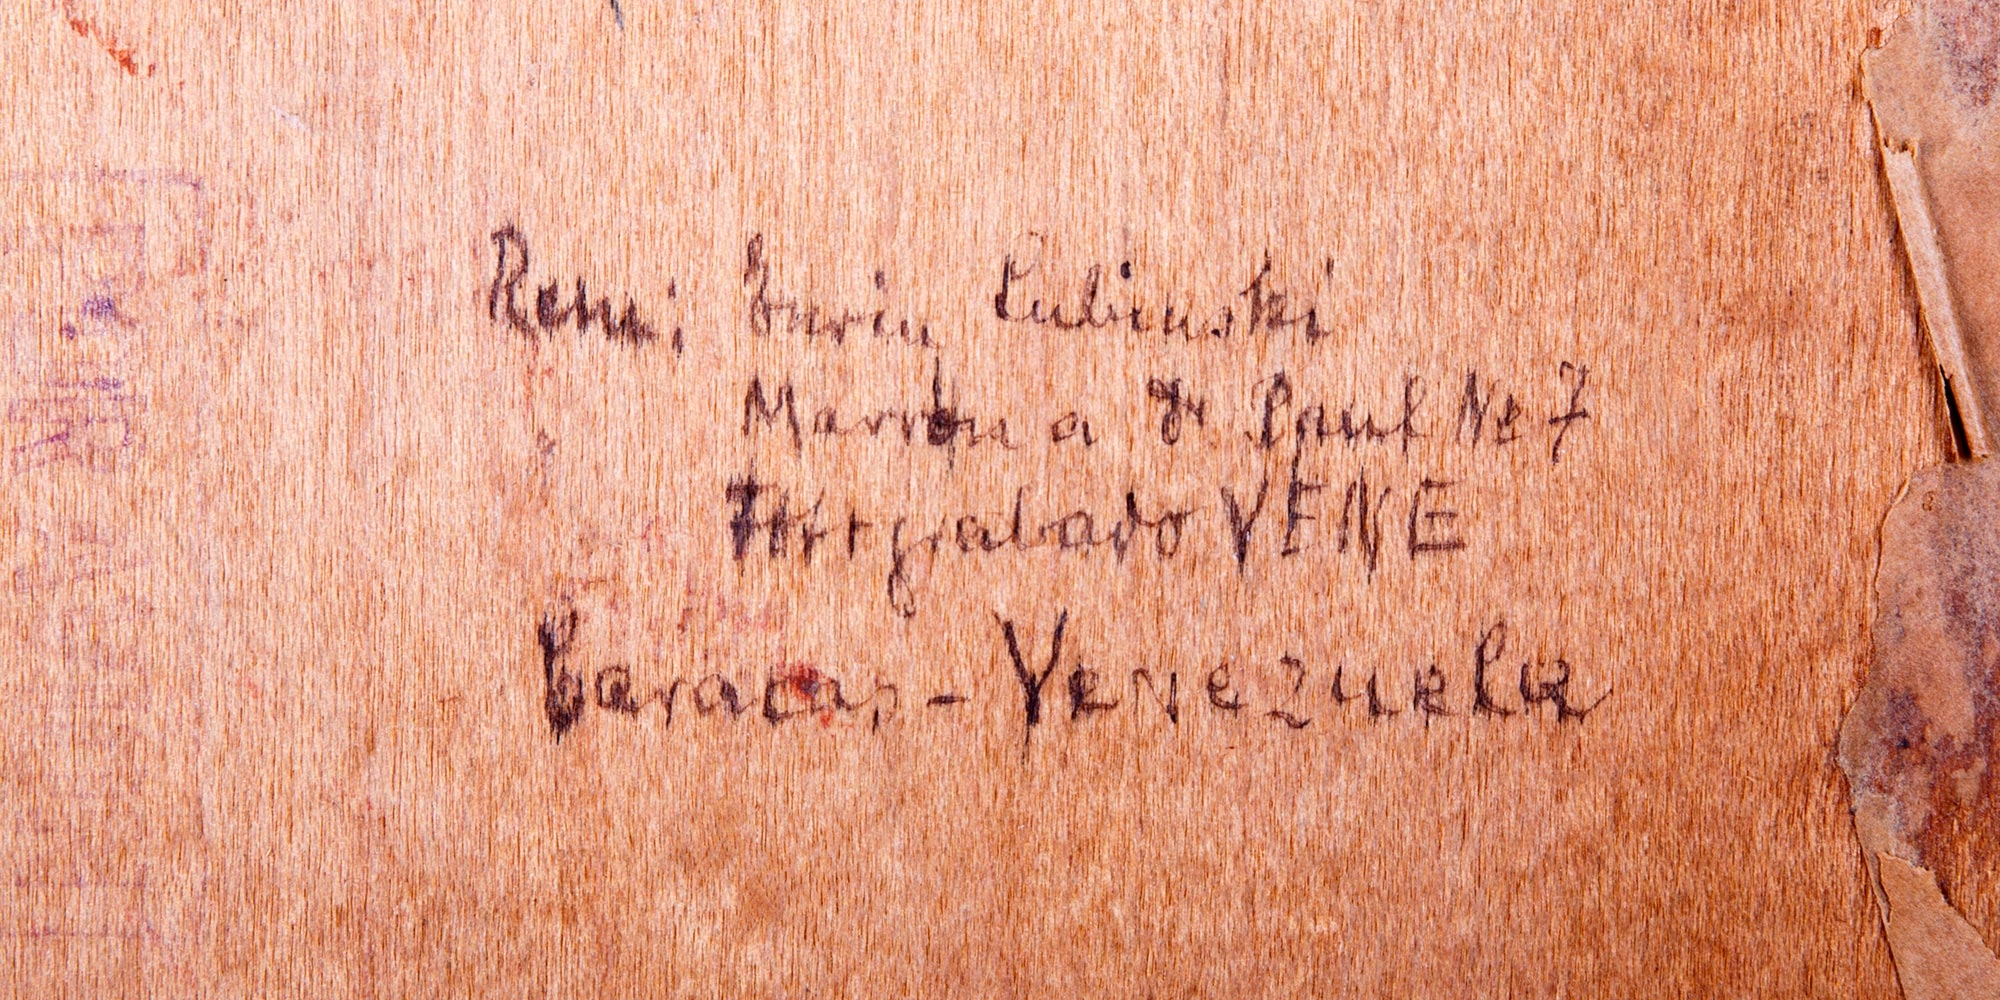 Remi; Lubinski
Marron a Dr. Paul No 7
Fotograbado VENE
Caracas - Venezuela